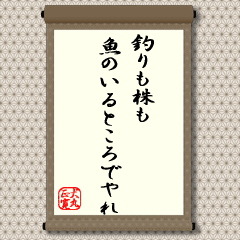 釣りも株も
魚のいるところでやれ